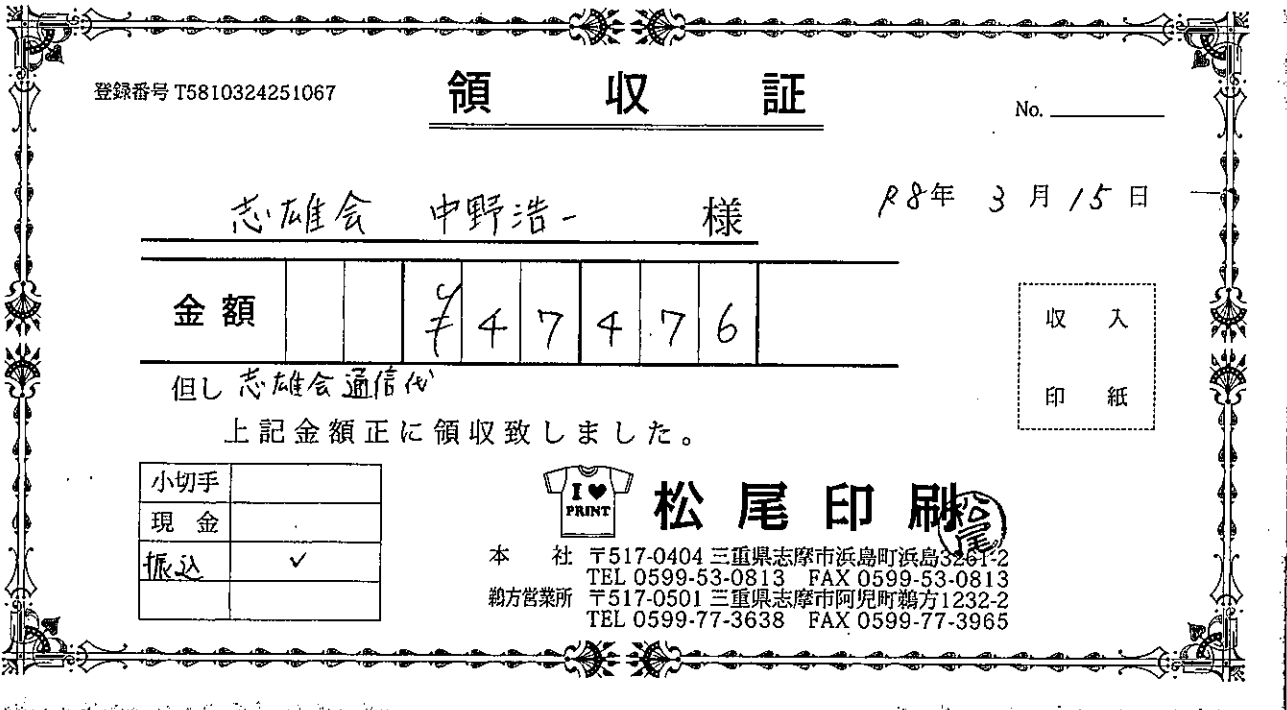 登録番号 T5810324251067
領収証
No.
志雄会 中野浩一 様
R8年 3月 15日
金額 ¥47476
収入
印紙
但し 志雄会通信代
上記金額正に領収致しました。
小切手
現金
振込 ✓
I ♥
PRINT
松尾印刷
松尾
本社 〒517-0404 三重県志摩市浜島町浜島3261-2
TEL 0599-53-0813 FAX 0599-53-0813
鵜方営業所 〒517-0501 三重県志摩市阿児町鵜方1232-2
TEL 0599-77-3638 FAX 0599-77-3965